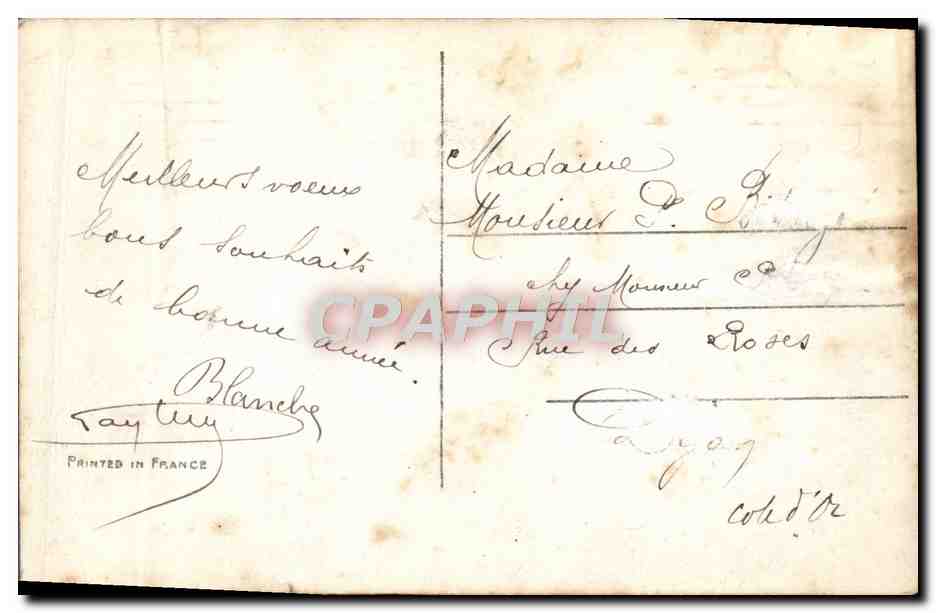 Meilleurs voeux
bons souhaits
de bonne année.
Blanche
PRINTED IN FRANCE
Madame
Monsieur P.
chez Monsieur
Rue des Roses
Cote d'Or
CPAPHIL